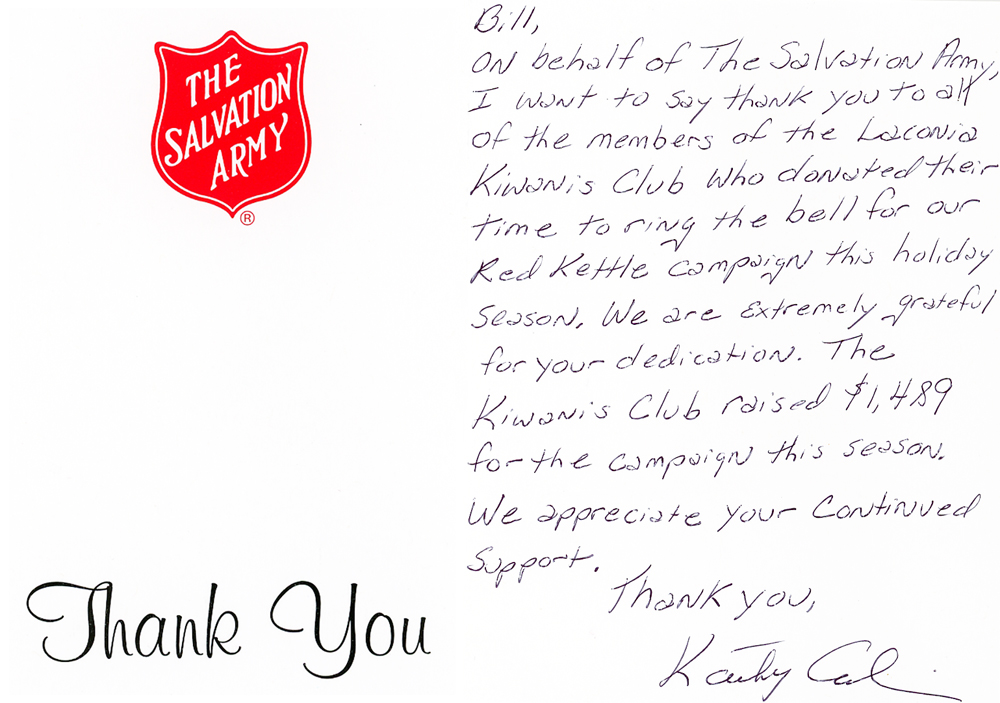 THE
SALVATION
ARMY
®
Thank You
Bill,
On behalf of The Salvation Army,
I want to say thank you to all
of the members of the Laconia
Kiwanis Club who donated their
time to ring the bell for our
Red Kettle campaign this holiday
season. We are extremely grateful
for your dedication. The
Kiwanis Club raised $1,489
for the campaign this season.
We appreciate your continued
support.
Thank you,
Kathy